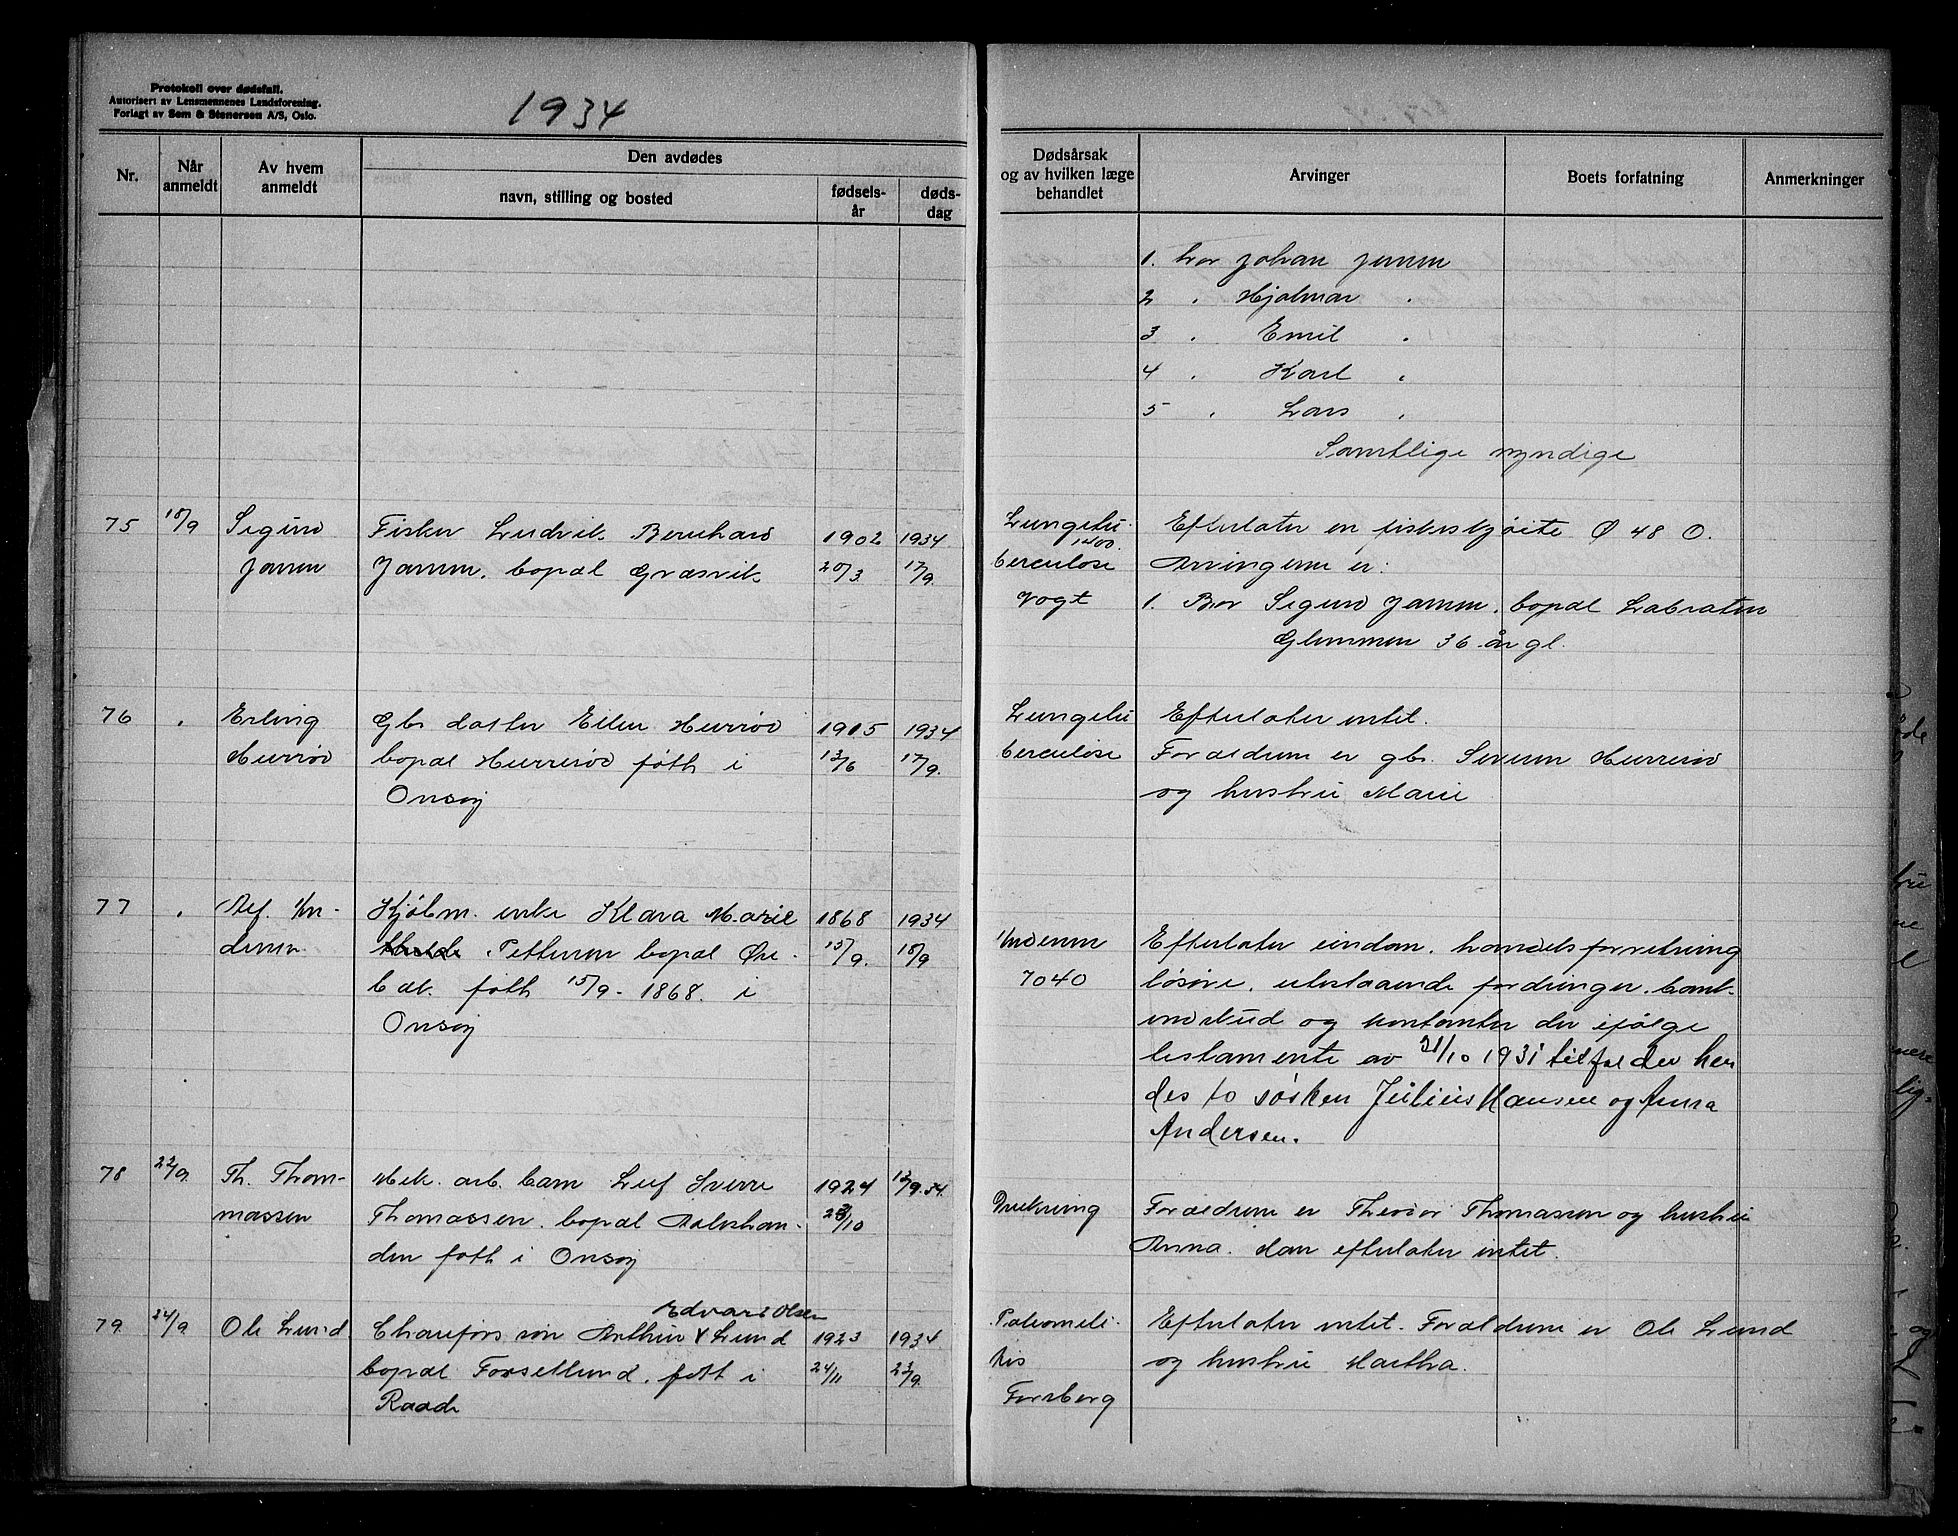 Protokoll over dødsfall.
Autorisert av Lensmennenes Landsforening.
Forlagt av Sem & Stenersen A/S, Oslo.
1934
Nr.
Når anmeldt
Av hvem anmeldt
Den avdødes
navn, stilling og bosted
fødsels-år
døds-dag
Dødsårsak og av hvilken læge behandlet
Arvinger
Boets forfatning
Anmerkninger
1. bror Johan Jensen
2 " Hjalmar "
3 " Emil "
4 " Karl "
5 " Lars "
Samtlige myndige
75 18/9 Sigurd Fisker Ludvik Bernhard 1902 1934
Jensen Jensen. bopæl Græsvik 20/3 17/9
Lungetu- Efterlater en fiskeskjøite Ø 48 O.
1400.
berculose Arvingerne er:
Vogt 1. Bror Sigurd Jensen, bopæl Labraten
Glemmen 36 år gl.
76 " Erling Gbr datter Ellen Hurrød 1915 1934
Hurrød bopæl Hurrerød født i 13/6 17/9.
Onsøy
Lungetu Efterlater intet.
berculose Foraeldrene er gbr. Severin Hurrerød
og hustru Marie
77 " Alf. An- Kjøbm. enke Klara Marie 1868 1934
dersen Pettersen bopæl Øre- 15/9. 18/9
bæk. født 15/9 - 1868. i
Onsøy
Andersen Efterlater eiendom. handelsforretning
7040 løsøre. utestaaende fordringer. bank-
indskud og kontanter der ifølge
testamente av 21/10 1931 tilfalder hen
des to søsken Julius Hansen og Anna
Andersen.
78 22/9. Th. Thom- Mek. arb. barn Leif Sverre 1924 13/9.34.
massen Thomassen. bopæl Aalesstran- 23/10
den født i Onsøy
Drukning Foraeldrene er Theodor Thomassen og hustru
Anna. Han efterlater intet.
79. 24/9. Ole Lund Chauførs søn Arthur v Lund 1923 1934.
Edvard Olsen
bopæl Forsetlund. født i 24/11 23/9.
Raade
Poleomeli- Efterlater intet. Foraeldrene er Ole Lund
tis og hustru Martha.
Forsberg